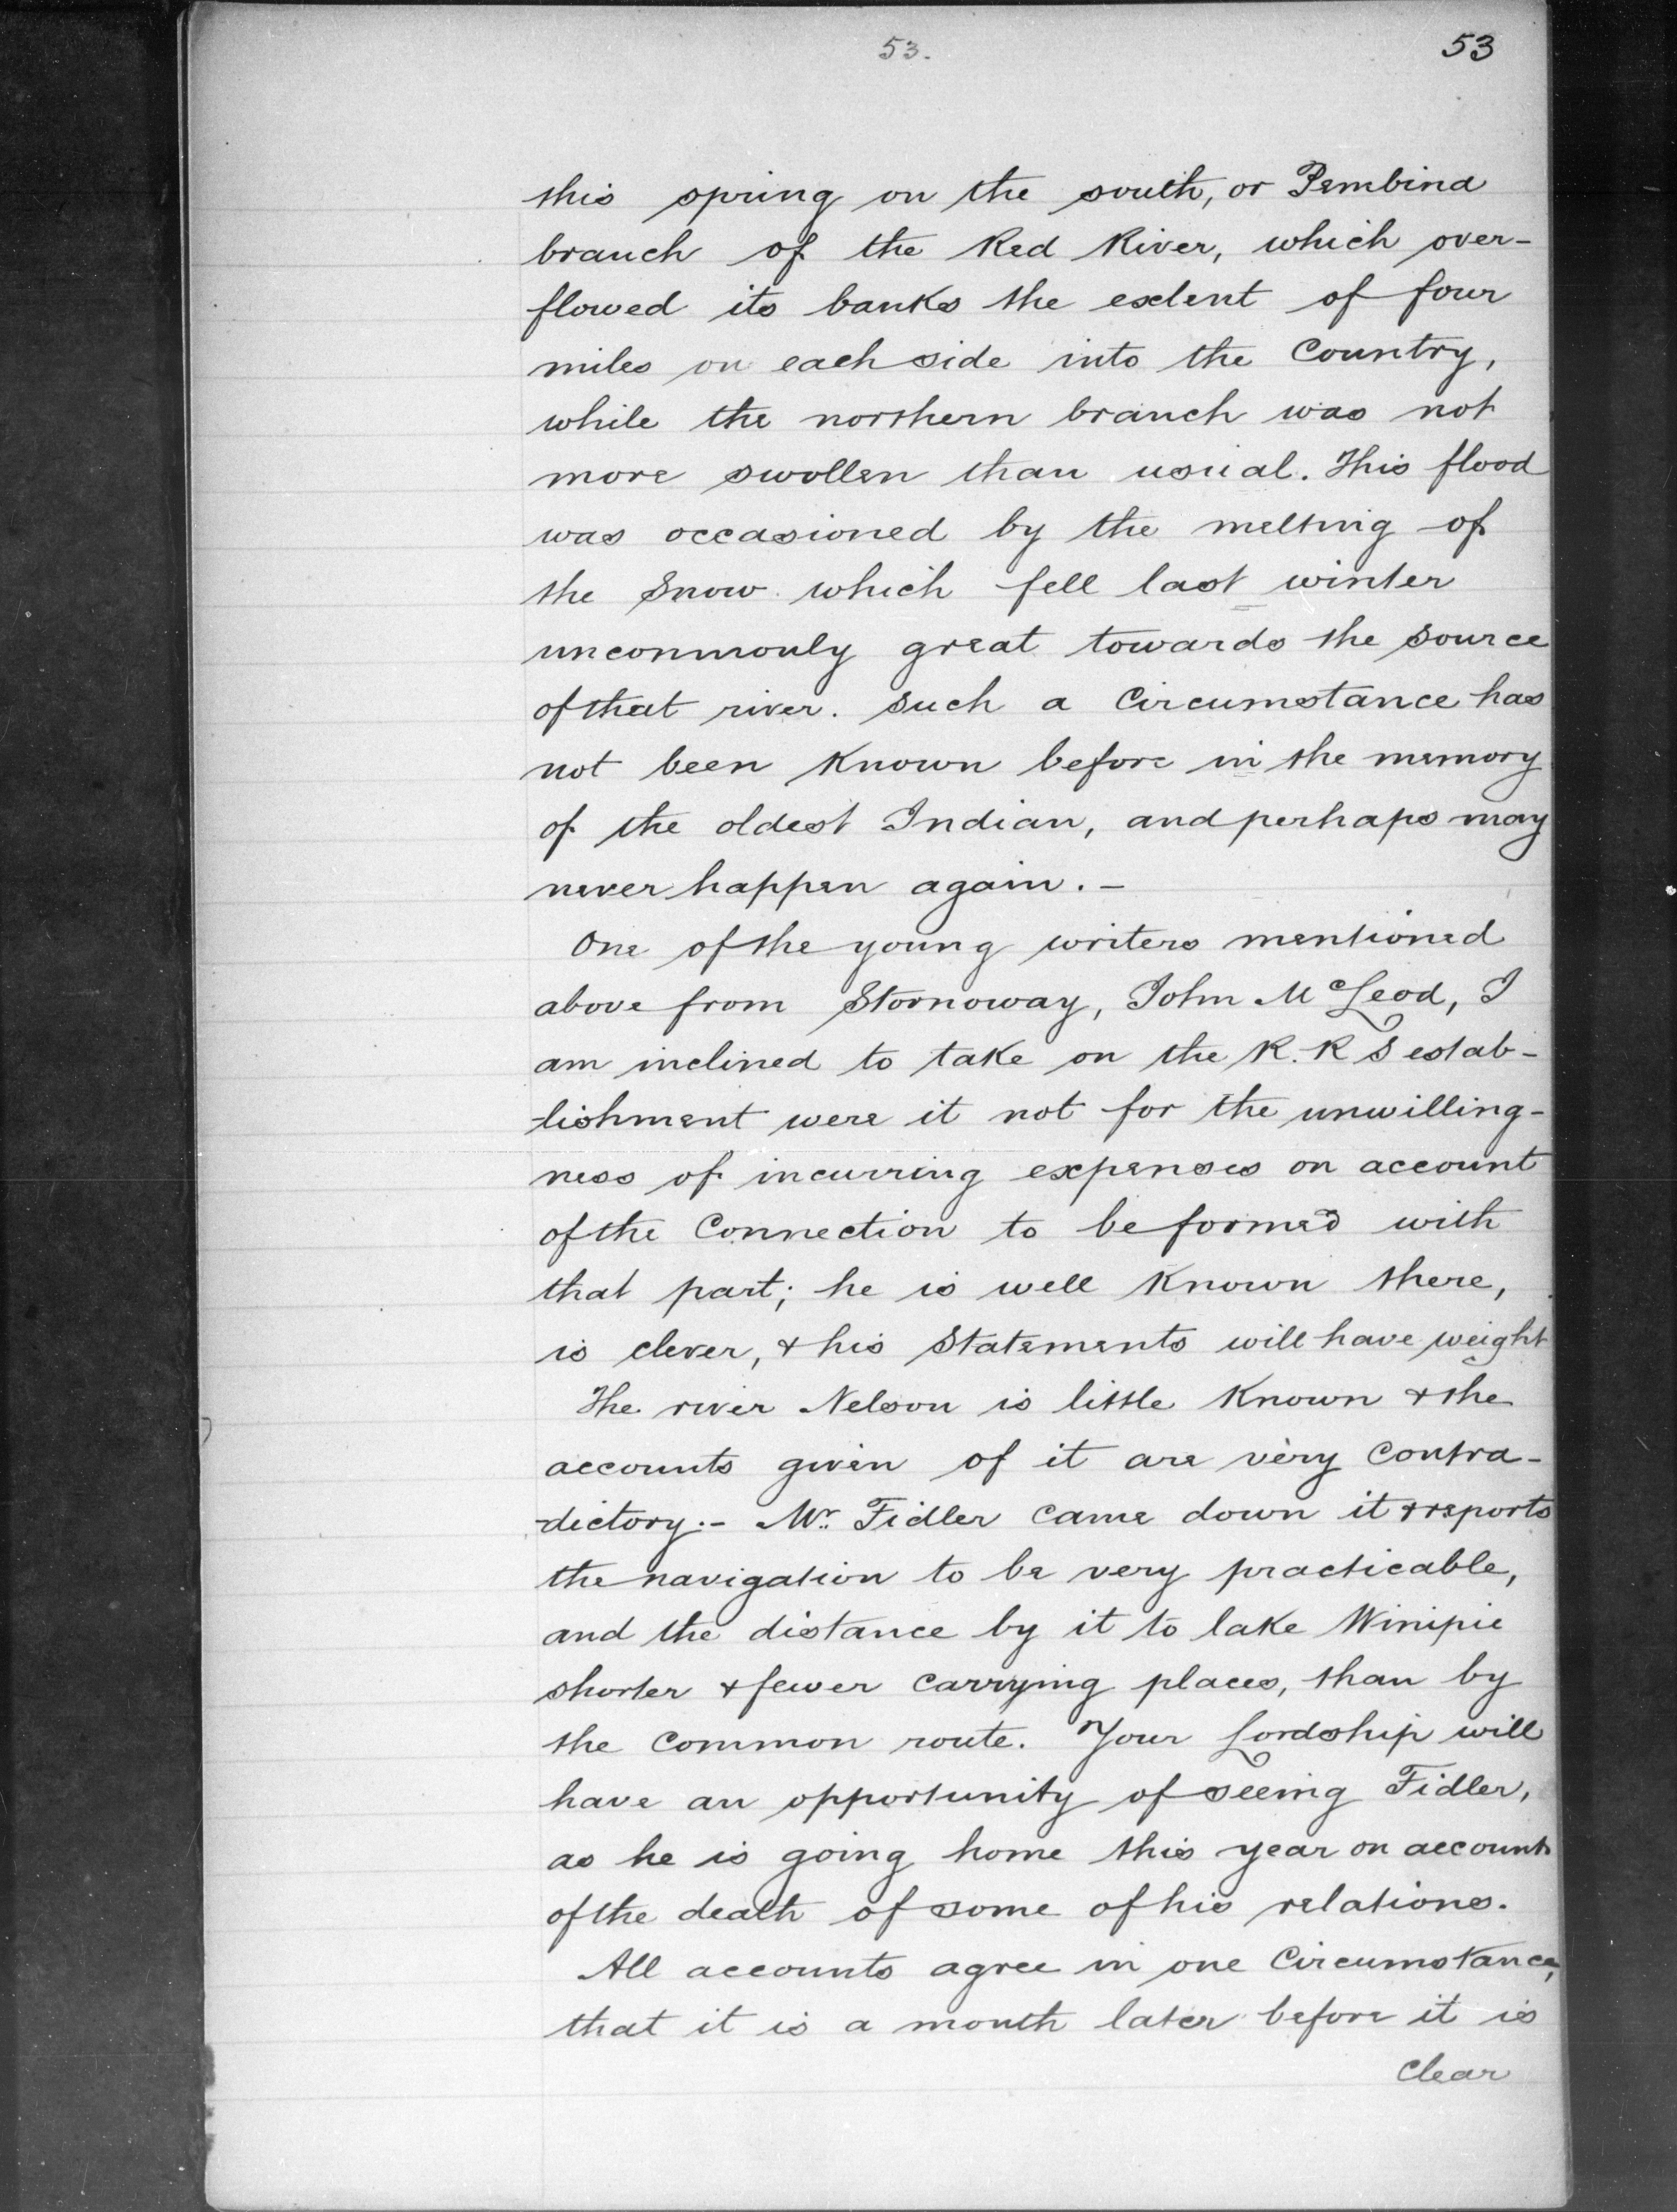 53.
53
this spring on the south, or Pembina
branch of the Red River, which over-
flowed its banks the extent of four
miles on each side into the Country,
while the northern branch was not
more swollen than usual. This flood
was occasioned by the melting of
the Snow which fell last winter
uncommonly great towards the Source
of that river. Such a Circumstance has
not been Known before in the memory
of the oldest Indian, and perhaps may
never happen again. -
One of the young writers mentioned
above from Stornoway, John McLeod, I
am inclined to take on the R. R S estab-
lishment were it not for the unwilling-
ness of incurring expenses on account
of the Connection to be formed with
that part; he is well Known there,
is clever, & his Statements will have weight
The river Nelson is little Known & the
accounts given of it are very Contra-
-dictory. - Mr. Fidler Came down it & reports
the navigation to be very practicable,
and the distance by it to lake Winipic
shorter & fewer Carrying places, than by
the Common route. Your Lordship will
have an opportunity of seeing Fidler,
as he is going home this year on account
of the death of some of his relations.
All accounts agree in one Circumstance,
that it is a month later before it is
Clear